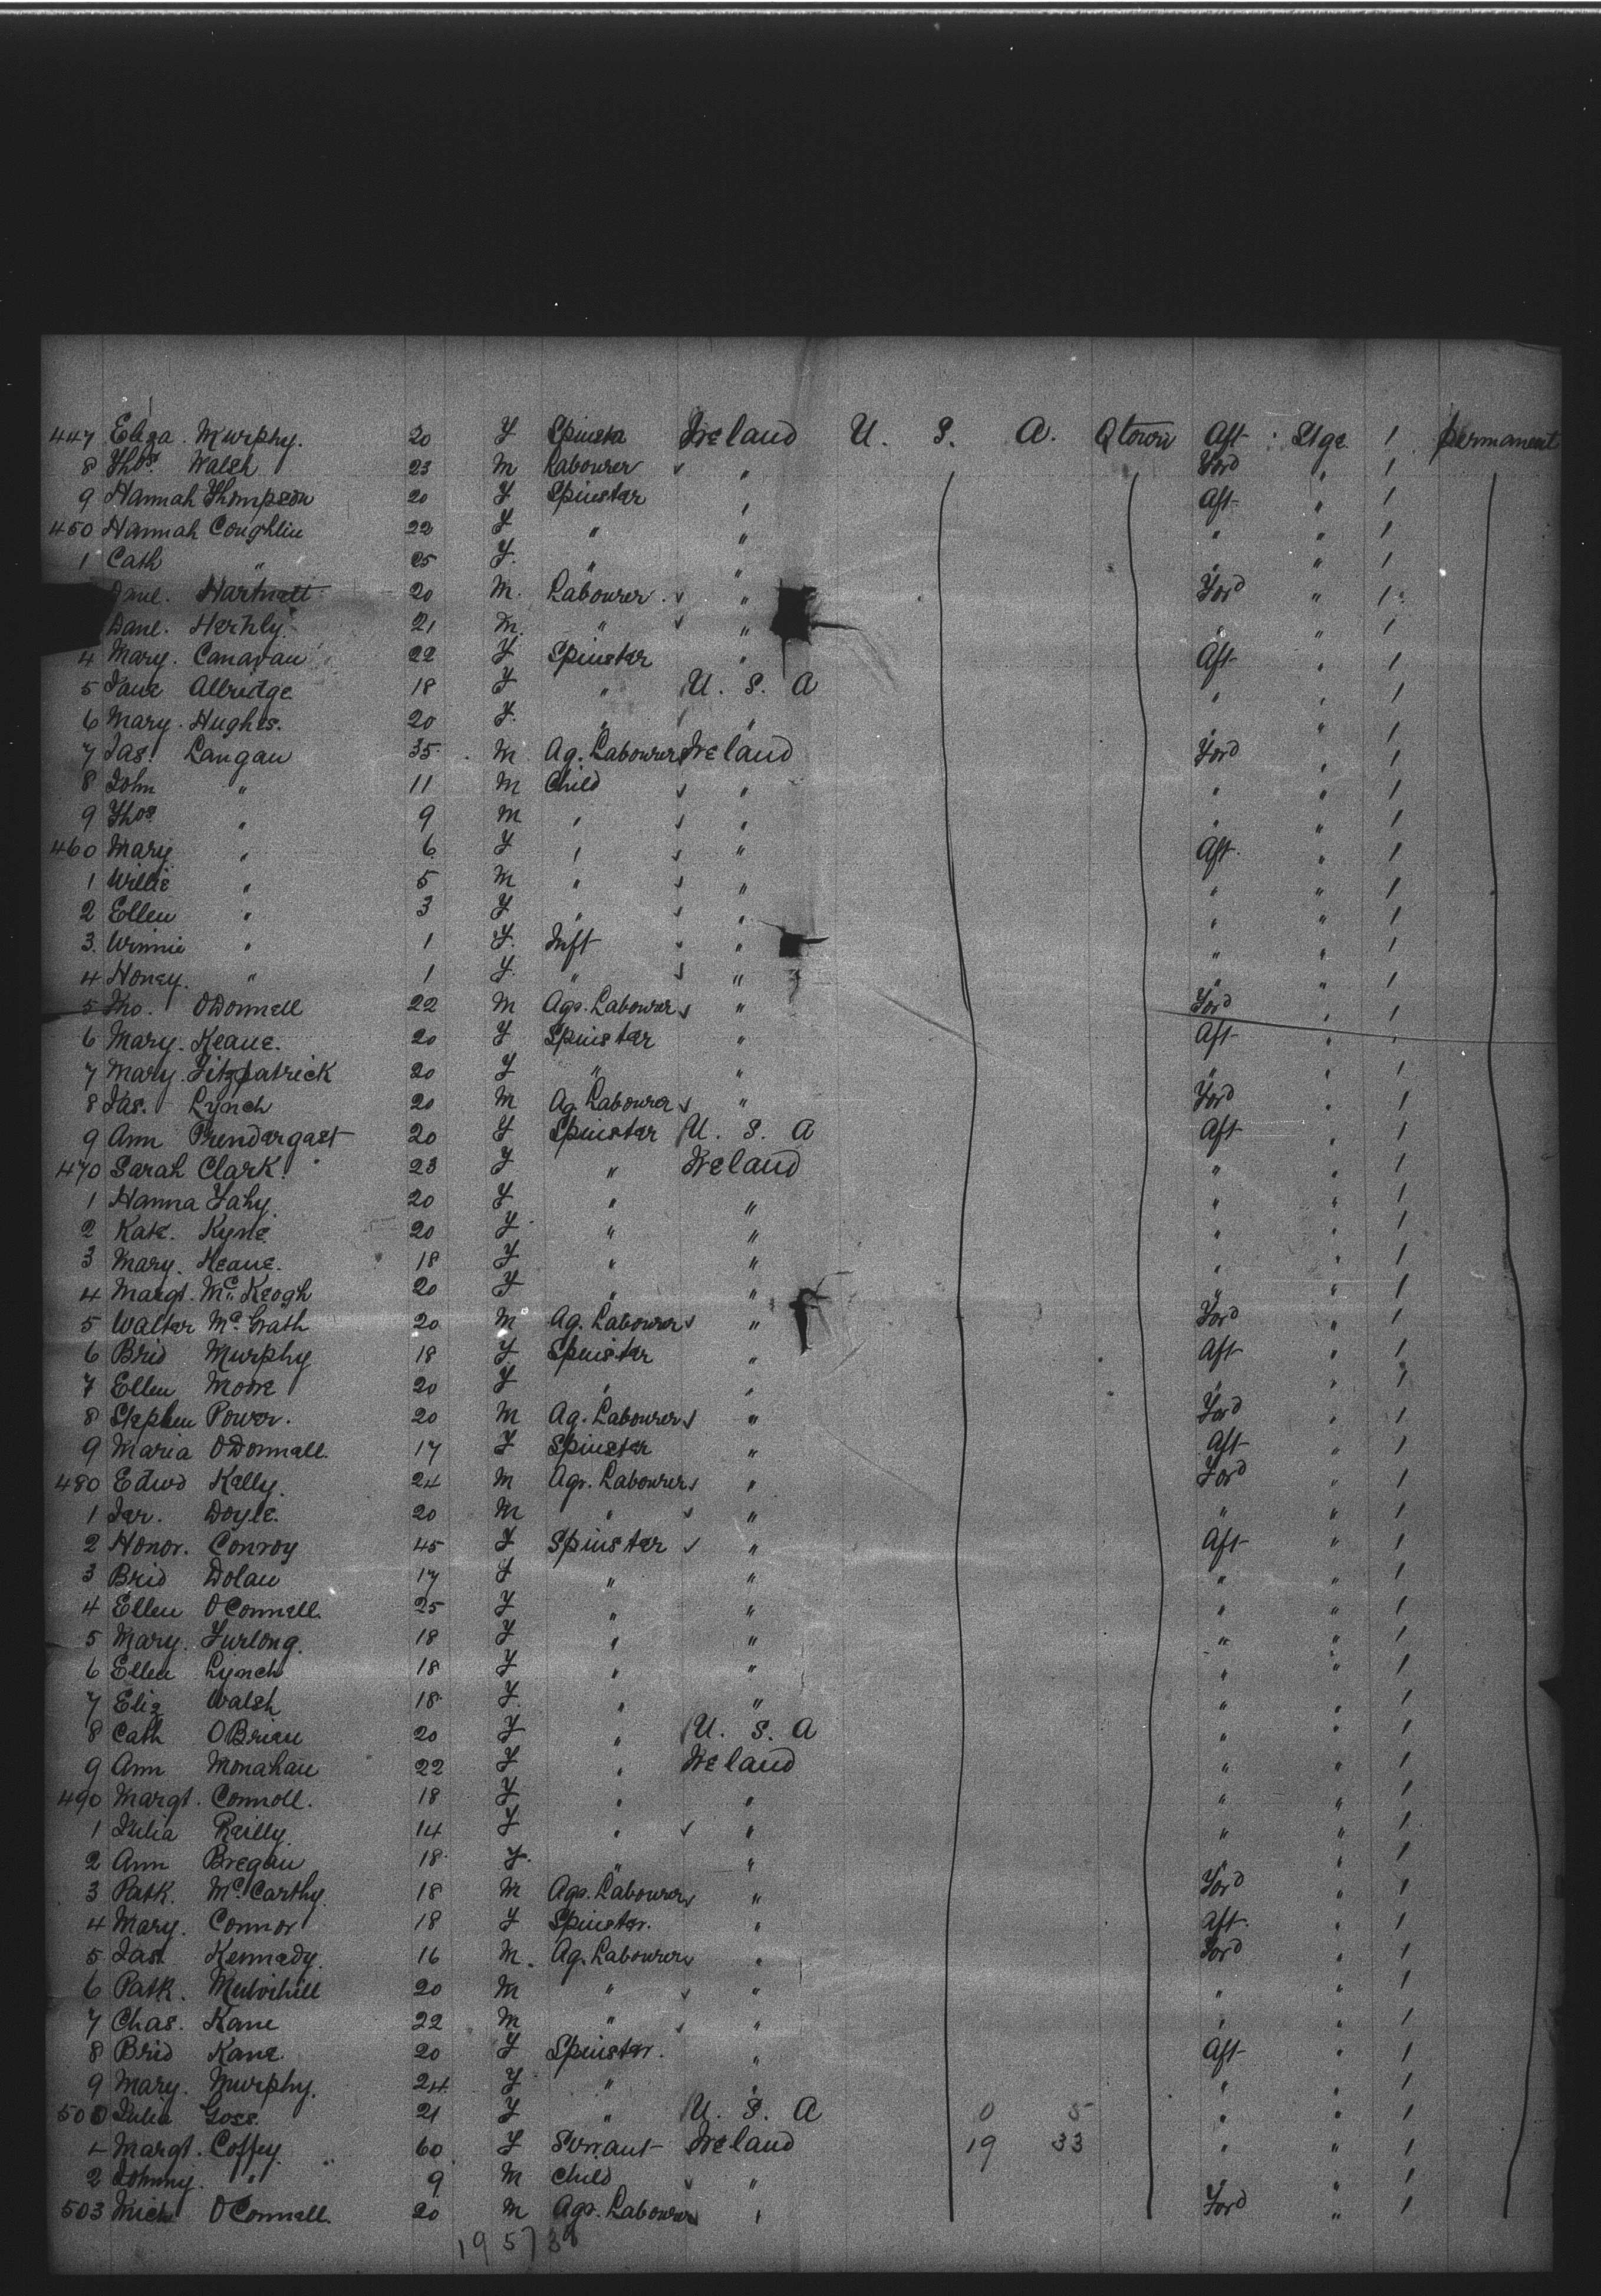 447 Eliza. Murphy. 20 F Spinsta Ireland U. S. A. Qtown Aft : Stge 1 permanent
8 Thos. Walsh 23 M Labourer ✓ " Ford " 1
9 Hannah Thompson 20 F Spinster " Aft " 1
450 Hannah Coughlin 22 F " " " " 1
1 Cath " 25 F. " " " " 1
Danl. Hartnett 20 M. Labourer. ✓ " Ford " 1
Danl. Herhly. 21 M. " ✓ " " " 1
4 Mary. Canavan 22 F Spinster " Aft " 1
5 Jane Allridge 18 F " U. S. A " " 1
6 Mary. Hughes. 20 F. " ✓ " " " 1
7 Jas. Langan 35 M Ag. Labourer Ireland Ford " 1
8 John " 11 M Child ✓ " " " 1
9 Thos " 9 M " ✓ " " " 1
460 Mary " 6 F " ✓ " Aft " 1
1 Willie " 5 M " ✓ " " " 1
2 Ellen " 3 F " ✓ " " " 1
3. Winnie " 1 F. Inft ✓ " " " 1
4 Honey. " 1 F. " ✓ " " " 1
5 Tho. ODonnell 22 M Agr. Labourer ✓ " Ford " 1
6 Mary. Keane. 20 F Spinster " Aft " 1
7 Mary. Fitzpatrick 20 F " " " " 1
8 Jas. Lynch 20 M Ag Labourer ✓ " Ford " 1
9 Ann Prendergast 20 F Spinster U. S. A Aft " 1
470 Sarah Clark. 23 F " Ireland " " 1
1 Hanna Fahy. 20 F " " " " 1
2 Kate. Kyne. 20 F " " " " 1
3 Mary. Keane. 18 F " " " " 1
4 Margt. Mc Keogh 20 F " " " " 1
5 Walter Mc Grath 20 M Ag. Labourer ✓ " Ford " 1
6 Brid Murphy 18 F Spinster " Aft " 1
7 Ellen Moore 20 F " " " " 1
8 Stephen Power. 20 M Ag. Labourer ✓ " Ford " 1
9 Maria ODonnell. 17 F Spinster " Aft " 1
480 Edwd Kelly. 24 M Agr. Labourer ✓ " Ford " 1
1 Jer. Doyle. 20 M " ✓ " " " 1
2 Honor. Conroy 45 F Spinster ✓ " Aft " 1
3 Brid Dolan 17 F " " " " 1
4 Ellen OConnell. 25 F " " " " 1
5 Mary. Furlong. 18 F " " " " 1
6 Ellen Lynch 18 F " " " " 1
7 Eliz Walsh 18 F. " " " " 1
8 Cath OBrien 20 F " U. S. A " " 1
9 Ann Monahan 22 F " Ireland " " 1
490 Margt. Connoll. 18 F " " " " 1
1 Julia Reilly. 14 F " ✓ " " " 1
2 Ann Bregan 18 F. " " " " 1
3 Patk. Mc Carthy. 18 M Agr. Labourer ✓ " Ford " 1
4 Mary. Connor 18 F Spinster. " Aft. " 1
5 Jas. Kennedy. 16 M. Ag. Labourer ✓ " Ford " 1
6 Patk. Mulvihill 20 M " ✓ " " " 1
7 Chas. Kane 22 M " ✓ " " " 1
8 Brid Kane. 20 F Spinster. " Aft " 1
9 Mary. Murphy. 24 F " " " " 1
500 Julia Goss. 21 F " U. S. A 0 5 " " 1
1 Margt. Coffey. 60 F Servant Ireland 19 33 " " 1
2 Johnny. " 9 M Child ✓ " " " 1
503 Mich OConnell. 20 M Agr. Labourer ✓ " Ford " 1
19 57